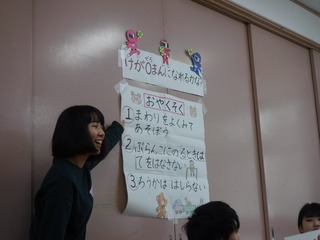 けが0まんになれるかな?
おやくそく
1.まわりをよくみて
あそぼう
2.ぶらんこにのるときは
てをはなさない
3.ろうかは はしらない